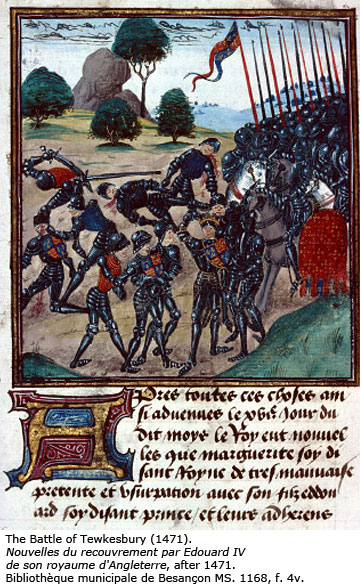 Apres toutes ces choses ain
si advenues le xvie Jour du
dit moys le Roy eut nouvel
les que marguerite soy di
sant Royne de tres mauvaise
pretente et usurpation avec son filz eddou
ard soy disant prince / et leurs adherens
The Battle of Tewkesbury (1471).
Nouvelles du recouvrement par Edouard IV
de son royaume d'Angleterre, after 1471.
Bibliothèque municipale de Besançon MS. 1168, f. 4v.